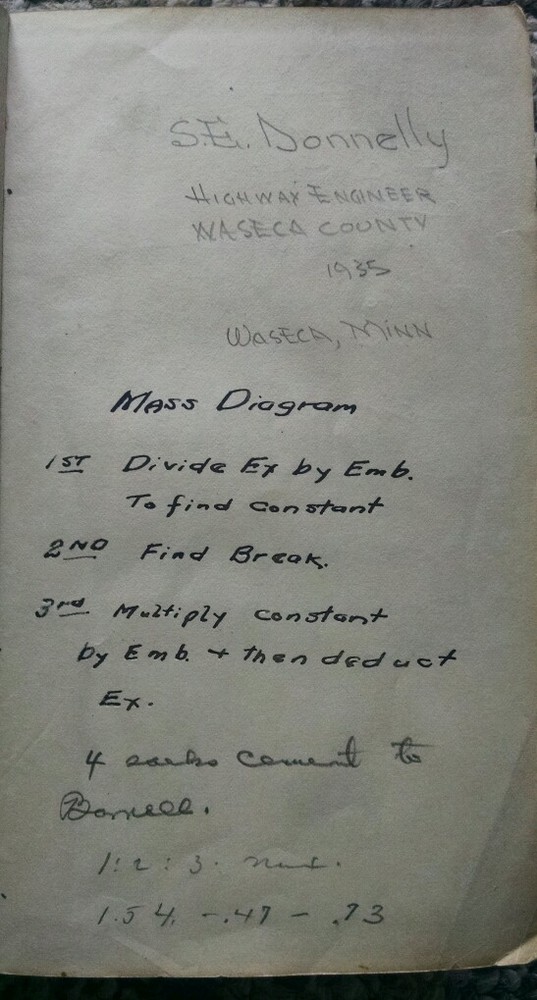 S.E. Donnelly
HIGHWAY ENGINEER
WASECA COUNTY
1935
WASECA, MINN
Mass Diagram
1ST Divide Ex by Emb.
To find constant
2ND Find Break.
3rd Multiply constant
by Emb. + then deduct
Ex.
4 sacks cement to
Barrell.
1:2:3.
1.54. - .47 - .93